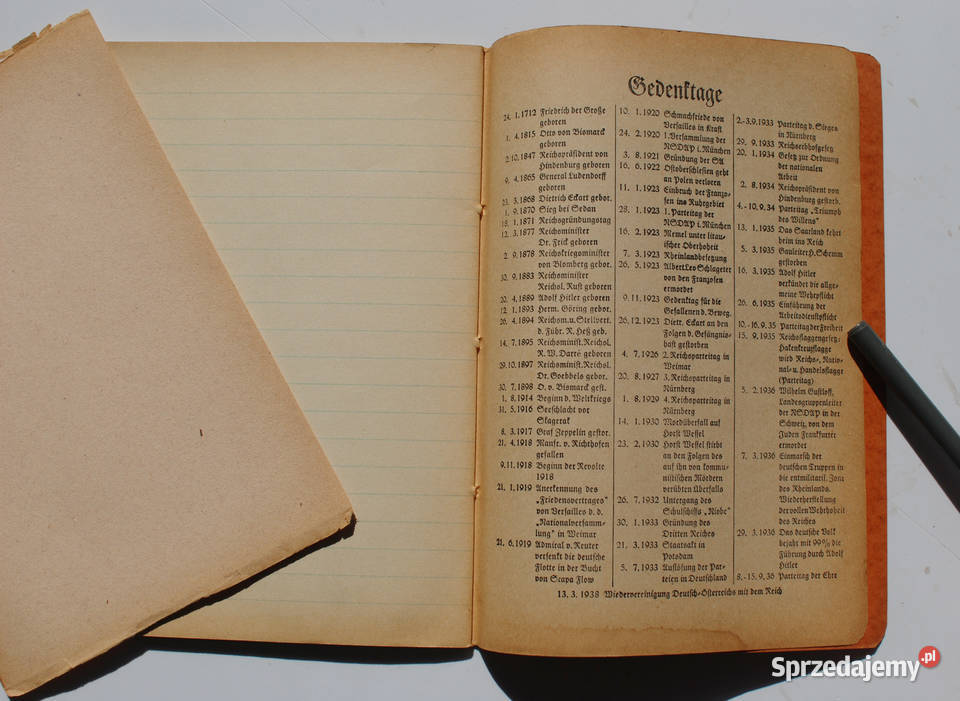 Gedenktage
24. 1. 1712 Friedrich der Große
geboren
1. 4. 1815 Otto von Bismarck
geboren
2. 10. 1847 Reichspräsident von
Hindenburg geboren
9. 4. 1865 General Ludendorff
geboren
23. 3. 1868 Dietrich Eckart gebor.
1. 9. 1870 Sieg bei Sedan
18. 1. 1871 Reichsgründungstag
12. 3. 1877 Reichsminister
Dr. Frick geboren
2. 9. 1878 Reichskriegsminister
von Blomberg gebor.
30. 9. 1883 Reichsminister
Reichsl. Rust geboren
20. 4. 1889 Adolf Hitler geboren
12. 1. 1893 Herm. Göring gebor.
26. 4. 1894 Reichsm. u. Stellvert.
d. Führ. R. Heß geb.
14. 7. 1895 Reichsminist. Reichsl.
R. W. Darré geboren
29. 10. 1897 Reichsminist. Reichsl.
Dr. Goebbels gebor.
30. 7. 1898 O. v. Bismarck gest.
1. 8. 1914 Beginn d. Weltkriegs
31. 5. 1916 Seeschlacht vor
Skagerak
8. 3. 1917 Graf Zeppelin gestor.
21. 4. 1918 Manfr. v. Richthofen
gefallen
9. 11. 1918 Beginn der Revolte
1918
21. 1. 1919 Anerkennung des
„Friedensvertrages"
von Versailles d. d.
„Nationalversamm-
lung" in Weimar
21. 6. 1919 Admiral v. Reuter
versenkt die deutsche
Flotte in der Bucht
von Scapa Flow
10. 1. 1920 Schmachfriede von
Versailles in Kraft
24. 2. 1920 1. Versammlung der
NSDAP i. München
3. 8. 1921 Gründung der SA
16. 6. 1922 Ostoberschlesien geht
an Polen verloren
11. 1. 1923 Einbruch der Franzo-
sen ins Ruhrgebiet
28. 1. 1923 1. Parteitag der
NSDAP i. München
16. 2. 1923 Memel unter litau-
ischer Oberhoheit
7. 3. 1923 Rheinlandbesetzung
26. 5. 1923 Albert Leo Schlageter
von den Franzosen
ermordet
9. 11. 1923 Gedenktag für die
Gefallenen d. Beweg.
26. 12. 1923 Dietr. Eckart an den
Folgen d. Gefängnis-
haft gestorben
4. 7. 1926 2. Reichsparteitag in
Weimar
20. 8. 1927 3. Reichsparteitag in
Nürnberg
1. 8. 1929 4. Reichsparteitag in
Nürnberg
14. 1. 1930 Mordüberfall auf
Horst Wessel
23. 2. 1930 Horst Wessel stirbt
an den Folgen des
auf ihn von kommu-
nistischen Mördern
verübten Überfalls
26. 7. 1932 Untergang des
Schulschiffs „Niobe"
30. 1. 1933 Gründung des
Dritten Reiches
21. 3. 1933 Staatsakt in
Potsdam
5. 7. 1933 Auflösung der Par-
teien in Deutschland
2.-3. 9. 1933 Parteitag d. Sieges
in Nürnberg
29. 9. 1933 Reichserbhofgesetz
20. 1. 1934 Gesetz zur Ordnung
der nationalen
Arbeit
2. 8. 1934 Reichspräsident von
Hindenburg gestorb.
4.-10. 9. 34 Parteitag „Triumph
des Willens"
13. 1. 1935 Das Saarland kehrt
heim ins Reich
5. 3. 1935 Gauleiter H. Schemm
gestorben
16. 3. 1935 Adolf Hitler
verkündet die allge-
meine Wehrpflicht
26. 6. 1935 Einführung der
Arbeitsdienstpflicht
10.-16. 9. 35 Parteitag der Freiheit
15. 9. 1935 Reichsflaggengesetz:
Hakenkreuzflagge
wird Reichs-, Natio-
nal- u. Handelsflagge
(Parteitag)
5. 2. 1936 Wilhelm Gustloff,
Landesgruppenleiter
der NSDAP in der
Schweiz, von dem
Juden Frankfurter
ermordet
7. 3. 1936 Einmarsch der
deutschen Truppen in
die entmilitaris. Zone
des Rheinlands.
Wiederherstellung
der vollen Wehrhoheit
des Reiches
29. 3. 1936 Das deutsche Volk
bejaht mit 99% die
Führung durch Adolf
Hitler
8.-15. 9. 36 Parteitag der Ehre
13. 3. 1938 Wiedervereinigung Deutsch-Österreichs mit dem Reich
Sprzedajemy.pl